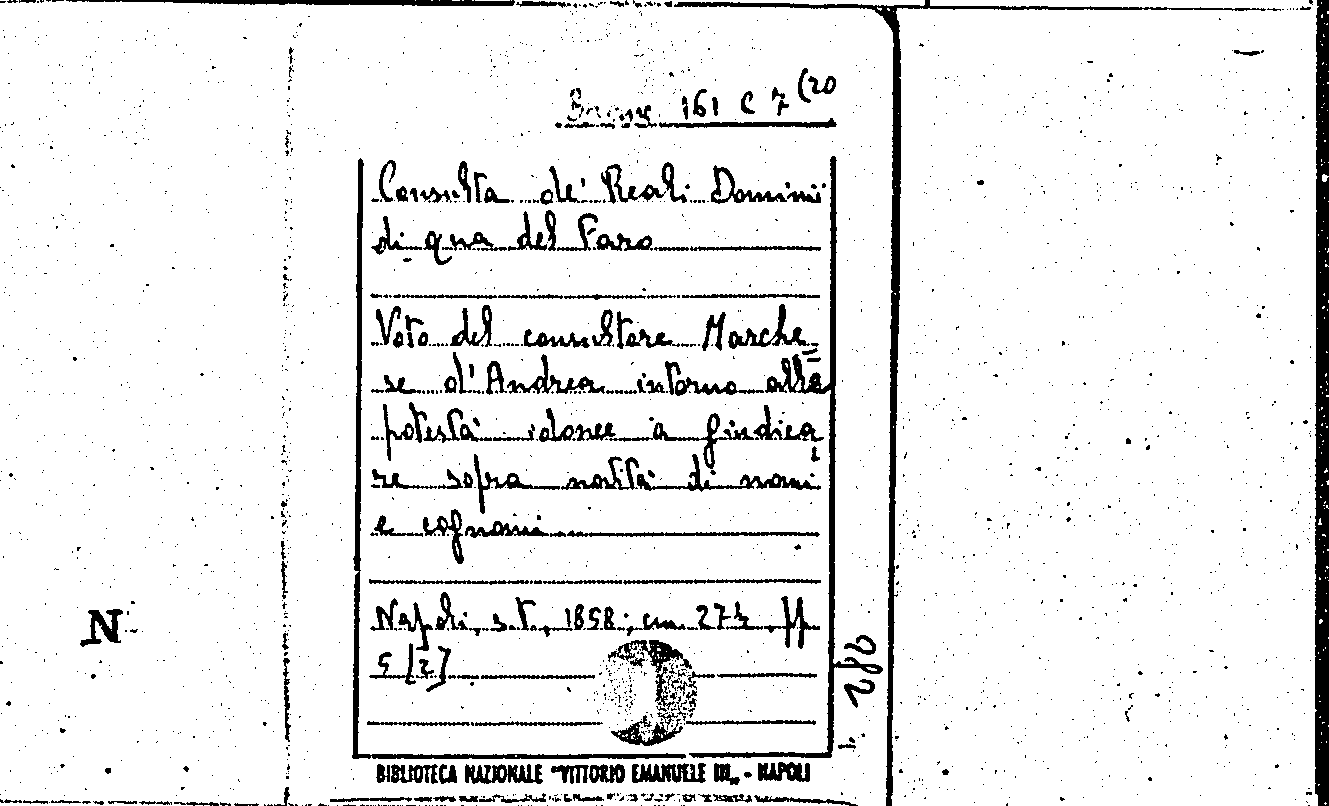 161 C 7 (20
Consulta de' Reali Dominii
di qua del Faro
Voto del consultore Marche
se d'Andrea intorno alle
potestà idonee a giudica
re sopra novità di nomi
e cognomi
Napoli, s.t., 1858; cm. 27½, pp
5 [2]
N
BIBLIOTECA NAZIONALE "VITTORIO EMANUELE III„ - NAPOLI